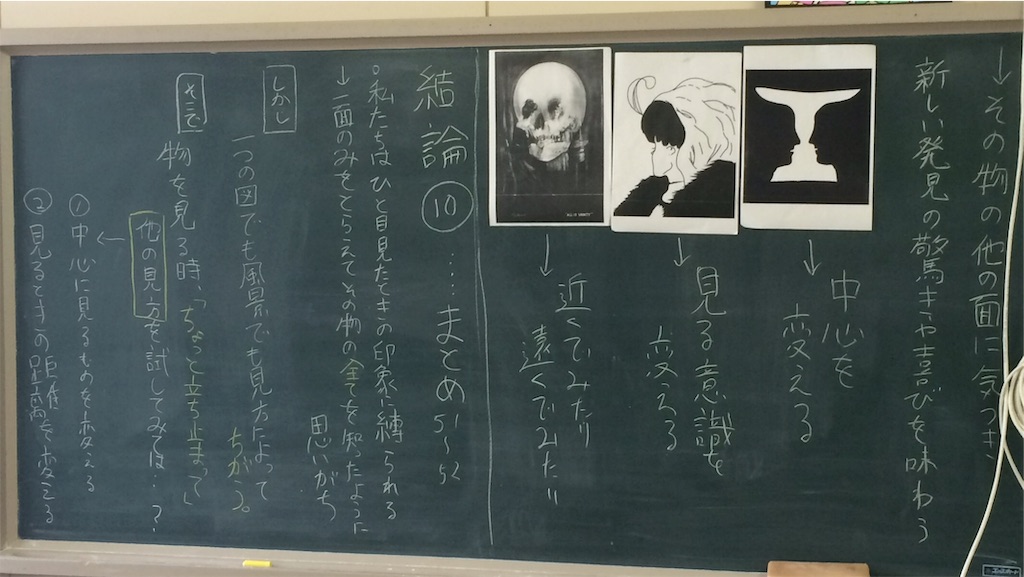 →その物の他の面に気づき、
新しい発見の驚きや喜びを味わう
→中心を
変える
→見る意識を
変える
→近くでみたり
遠くでみたり
結論⑩……まとめ51~52
○私たちはひと目見たときの印象に縛られる
→一面のみをとらえてその物の全てを知ったように
思いがち
しかし
一つの図でも風景でも見方によって
ちがう。
そこで
物を見る時、「ちょっと立ち止まって」
他の見方を試してみては…?
①中心に見るものを変える
②見るときの距離を変える